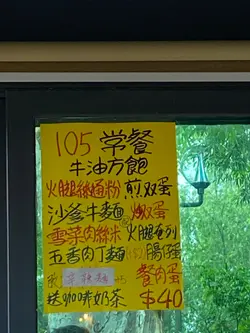 105 常餐
牛油方飽
火腿絲通粉 煎双蛋
沙爹牛麵 炒蛋
雪菜肉絲米 火腿
五香肉丁麵 腸蛋
餐肉蛋
送 奶茶 $40